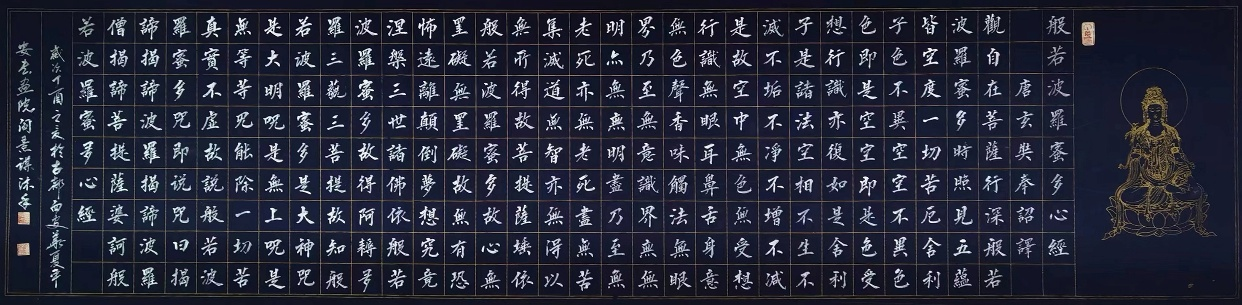 般若波羅蜜多心經
唐玄奘奉詔譯
觀自在菩薩行深般若
波羅蜜多時照見五蘊
皆空度一切苦厄舍利
子色不異空空不異色
色即是空空即是色受
想行識亦復如是舍利
子是諸法空相不生不
滅不垢不淨不增不減
是故空中無色無受想
行識無眼耳鼻舌身意
無色聲香味觸法無眼
界乃至無意識界無無
明亦無無明盡乃至無
老死亦無老死盡無苦
集滅道無智亦無得以
無所得故菩提薩埵依
般若波羅蜜多故心無
罣礙無罣礙故無有恐
怖遠離顛倒夢想究竟
涅槃三世諸佛依般若
波羅蜜多故得阿耨多
羅三藐三菩提故知般
若波羅蜜多是大神咒
是大明咒是無上咒是
無等等咒能除一切苦
真實不虛故說般若波
羅蜜多咒即說咒曰揭
諦揭諦波羅揭諦波羅
僧揭諦菩提薩婆訶般
若波羅蜜多心經
於古都西安華夏平
安書畫院沐手